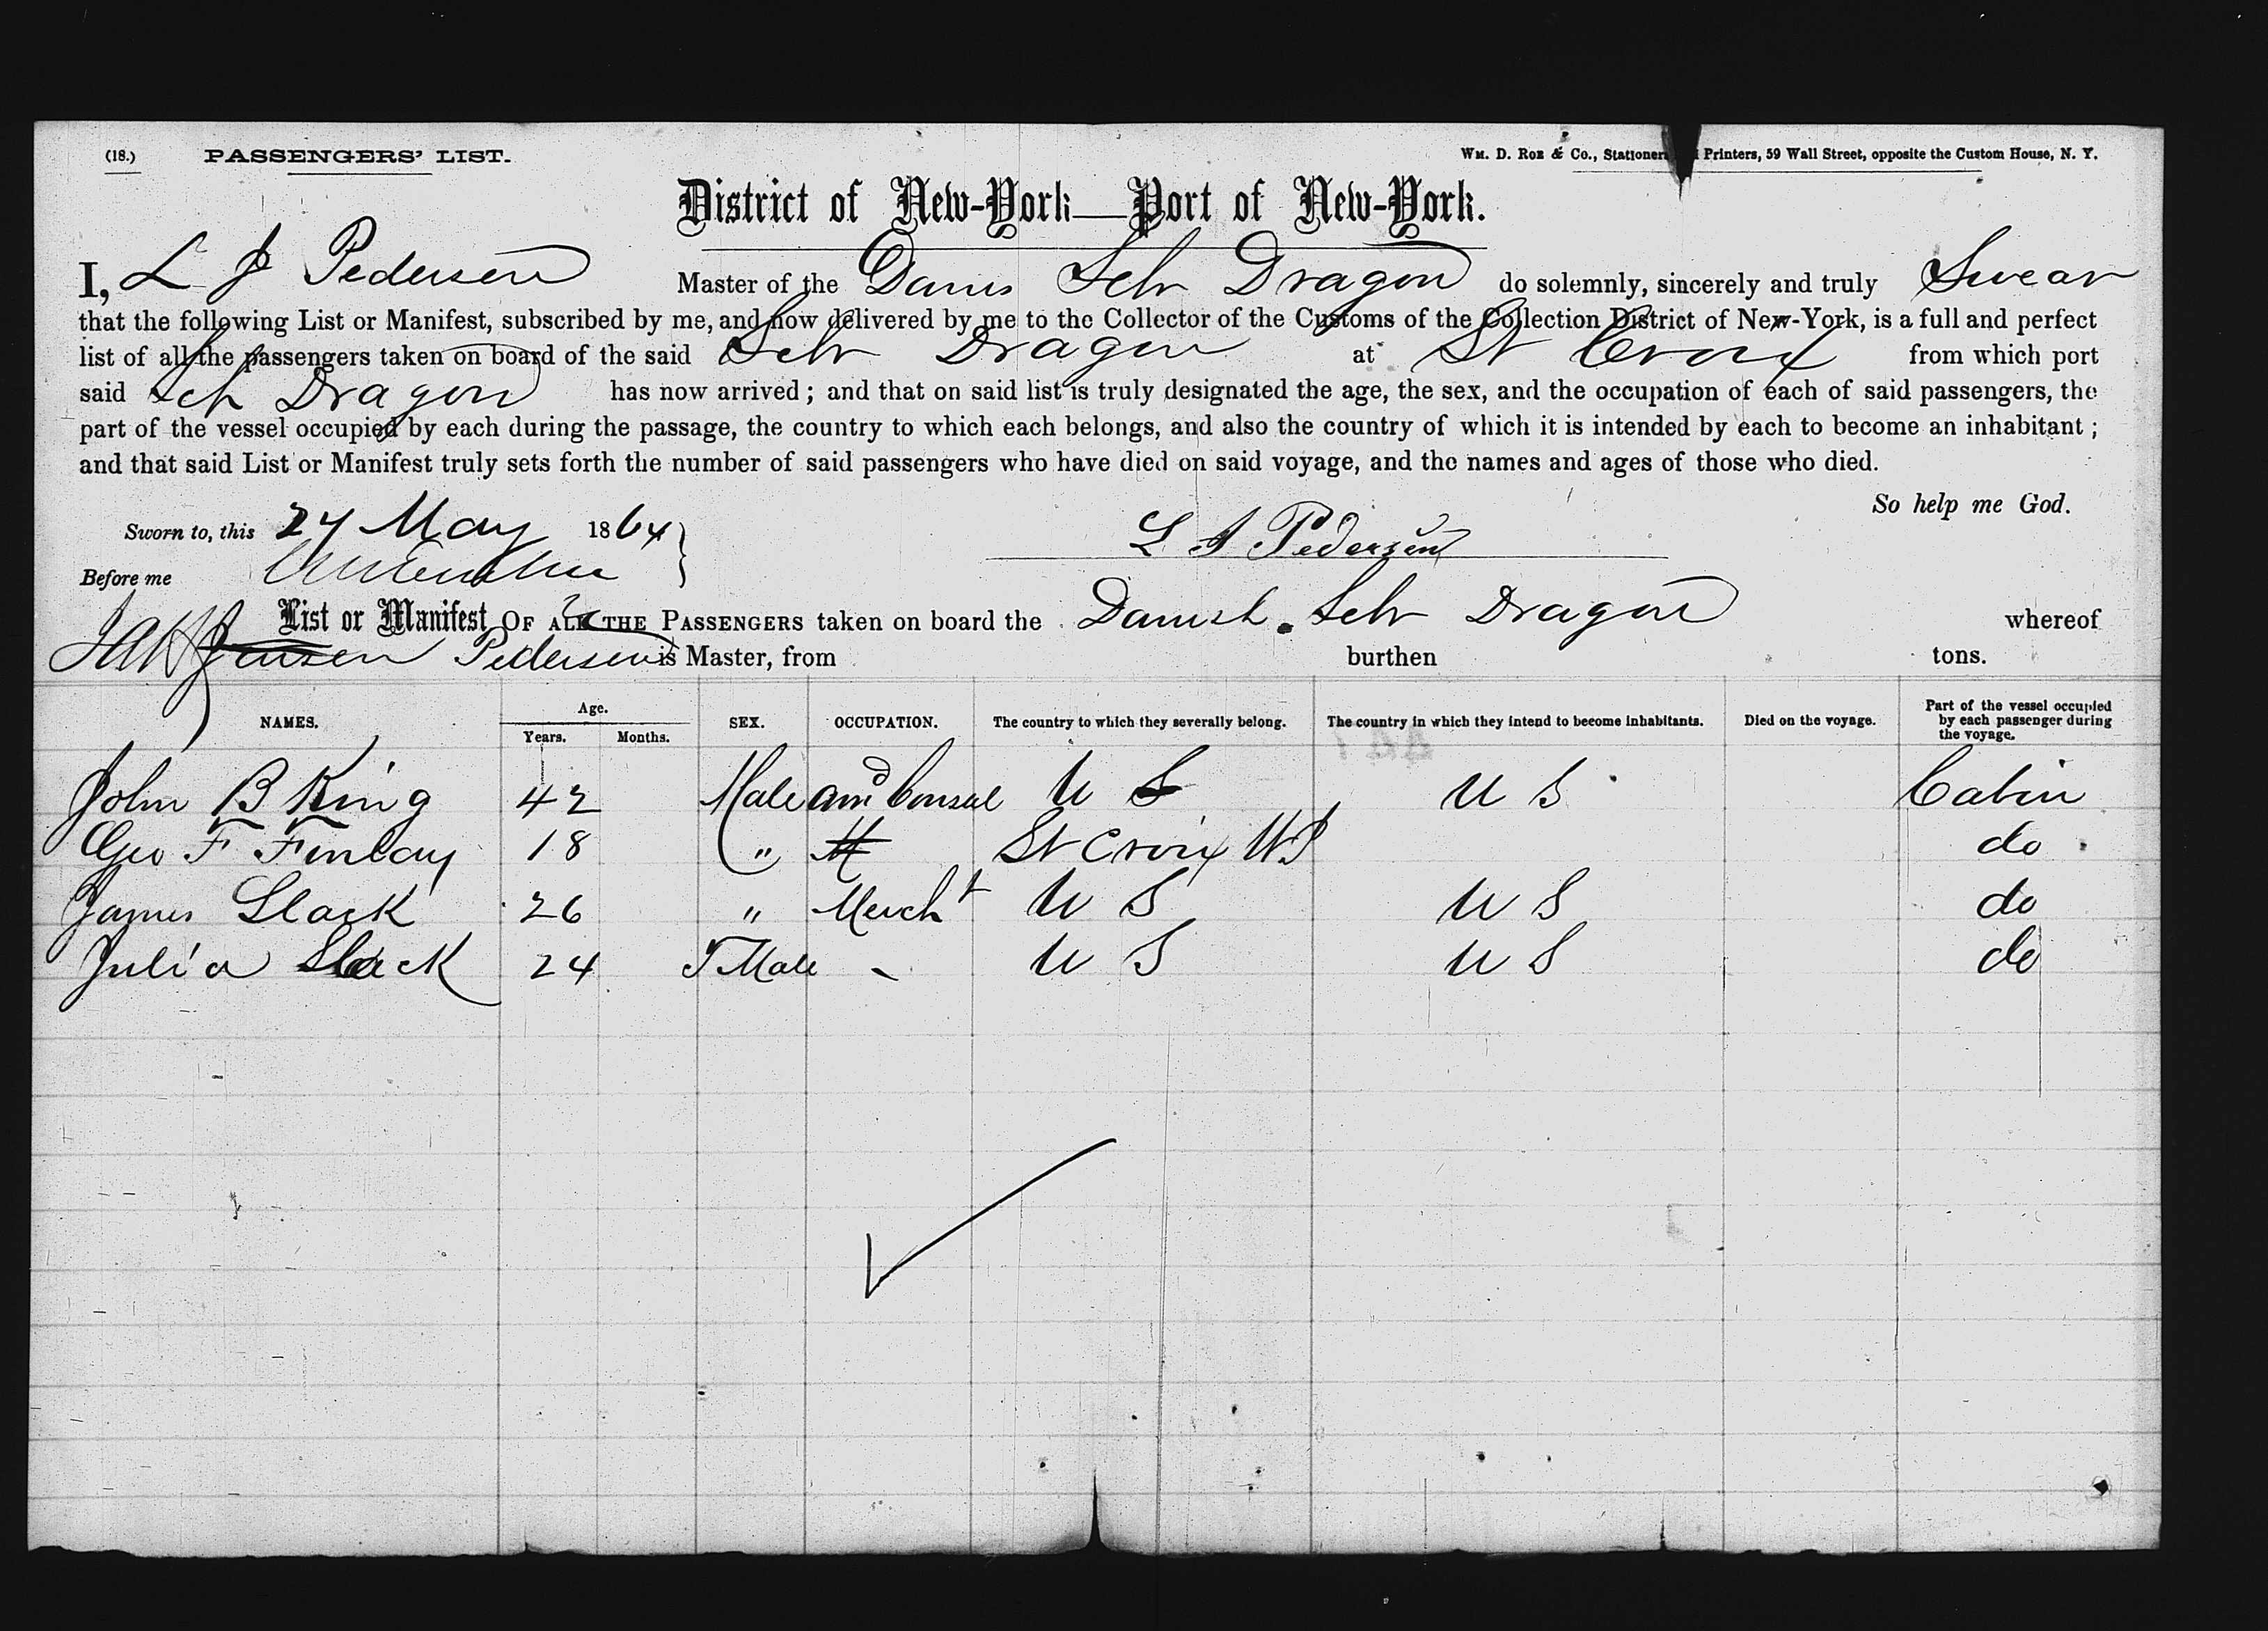 (18.) PASSENGERS' LIST. Wm. D. Roe & Co., Stationers Printers, 59 Wall Street, opposite the Custom House, N. Y.
District of New-York—Port of New-York.
I, L J Pedersen Master of the Danis Schr Dragon do solemnly, sincerely and truly Swear
that the following List or Manifest, subscribed by me, and now delivered by me to the Collector of the Customs of the Collection District of New-York, is a full and perfect
list of all the passengers taken on board of the said Schr Dragon at St Croix from which port
said Sch Dragon has now arrived; and that on said list is truly designated the age, the sex, and the occupation of each of said passengers, the
part of the vessel occupied by each during the passage, the country to which each belongs, and also the country of which it is intended by each to become an inhabitant;
and that said List or Manifest truly sets forth the number of said passengers who have died on said voyage, and the names and ages of those who died.
So help me God.
Sworn to, this 24 May 1864
L J Pedersen
Before me
List or Manifest OF ALL THE PASSENGERS taken on board the Danish Schr Dragon whereof
Jensen Pedersen is Master, from burthen tons.
NAMES. Age. Years. Months. SEX. OCCUPATION. The country to which they severally belong. The country in which they intend to become inhabitants. Died on the voyage. Part of the vessel occupied by each passenger during the voyage.
John B King 42 Male Am Consul U S U S Cabin
Geo F Finlay 18 " St Croix WI do
James Slack 26 " Mercht U S U S do
Julia Slack 24 FMale - U S U S do